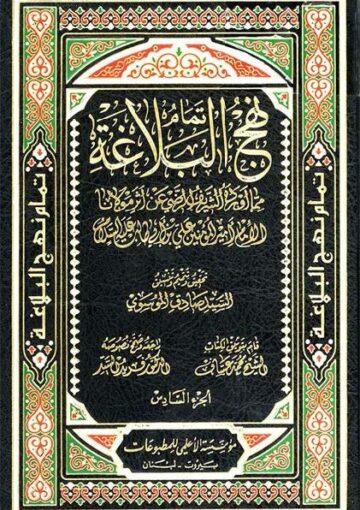 تمام
نهج البلاغة
مما أورده الشريف الرضي عن أثر مولانا
الإمام أمير المؤمنين علي بن أبي طالب عليه السلام
تحقيق وتتميم وتنسيق
السيد صادق الموسوي
قام بتوثيق الكتاب
الشيخ محمد عساف
راجعه وصحح نصوصه
الدكتور فريد السيد
الجزء السادس
مؤسسة الأعلمي للمطبوعات
بيروت - لبنان
تمام نهج البلاغة
تمام نهج البلاغة